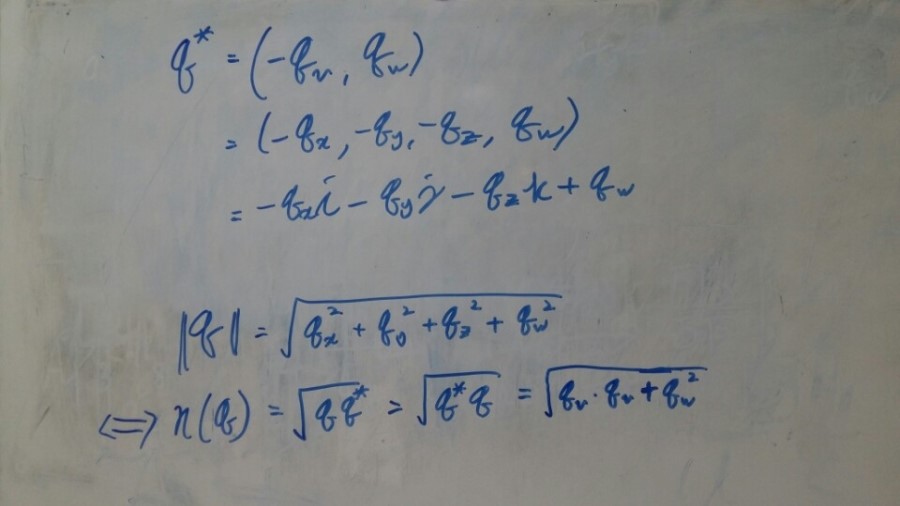 q* = (-qᵥ, q_w)
= (-qₓ, -q_y, -q_z, q_w)
= -qₓi - q_yj - q_zk + q_w
|q| = √(qₓ² + q_y² + q_z² + q_w²)
⟺ n(q) = √(qq*) = √(q*q) = √(qᵥ·qᵥ + q_w²)